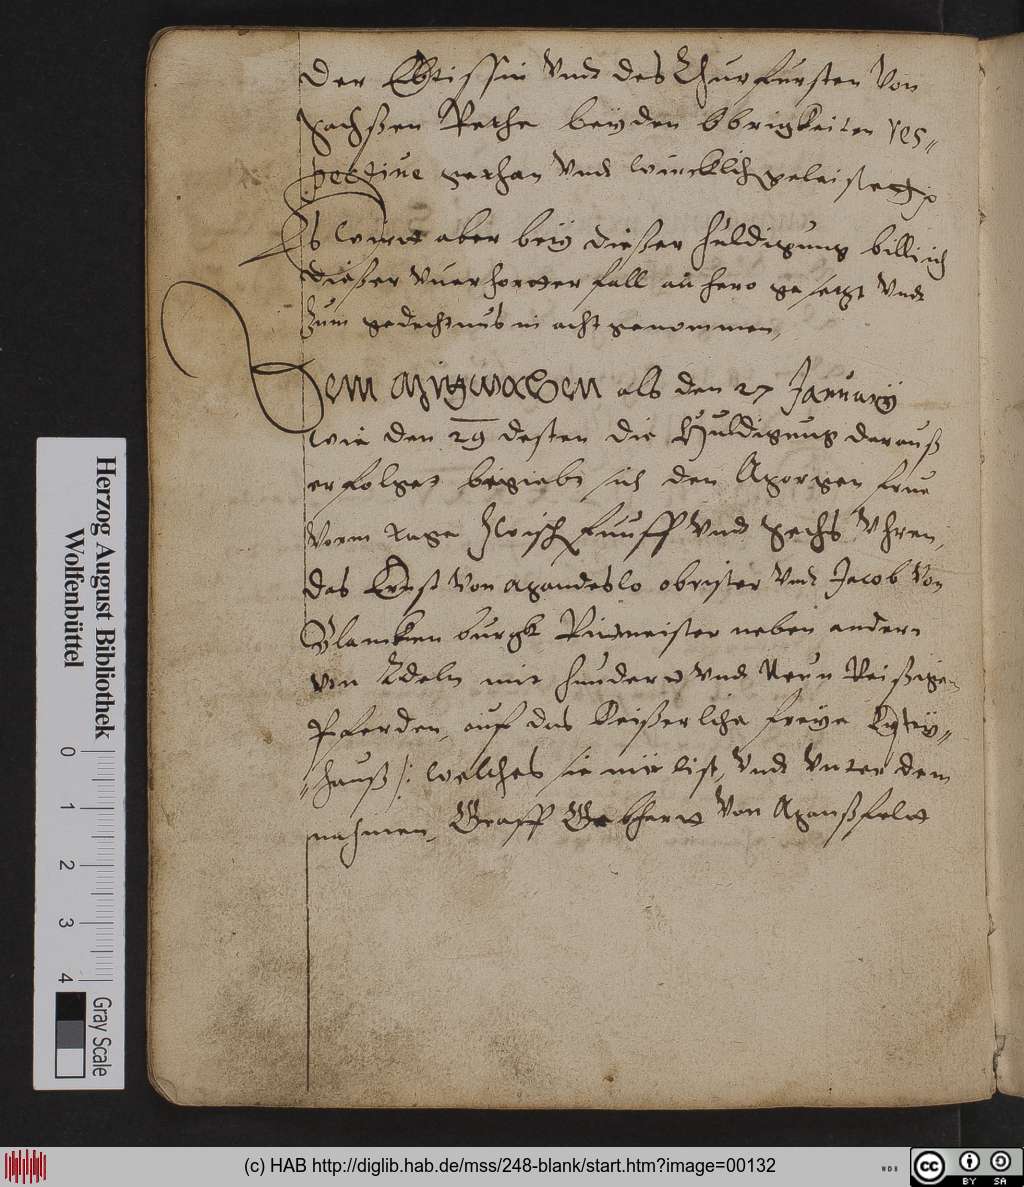 Der Ebtissin Vnd des Churfursten Von
Sachßen Rethe beyden Obrigkeiten res-
pective gethan Vnd wurcklich geleistet
Es wirt aber bey dießer Huldigung billich
dießer vnerhorter fall anhero gesetzt Vnd
zum gedechtnus in acht genommen,
Dem Mitwochen als den 27 January
wie den 29 desten die Huldigung darauß
erfolget begiebt sich den Morgen frue
Vorm tage Zwisch funff Vnd Sechs Vhren,
das Ernst Von Mandeslo obrister Vnd Jacob Von
Blancken burgk Ritmeister neben andern
von Adeln mit hundert Vnd Neun Reißigen
Pferden, auf das Keißerliche freye
hauß /: welches sie mit list, Vnd Vnter dem
nahmen, Graff Gebhart Von Manßfelt
Herzog August Bibliothek
Wolfenbüttel
0 1 2 3 4
Gray Scale
(c) HAB http://diglib.hab.de/mss/248-blank/start.htm?image=00132
WDB
cc BY SA